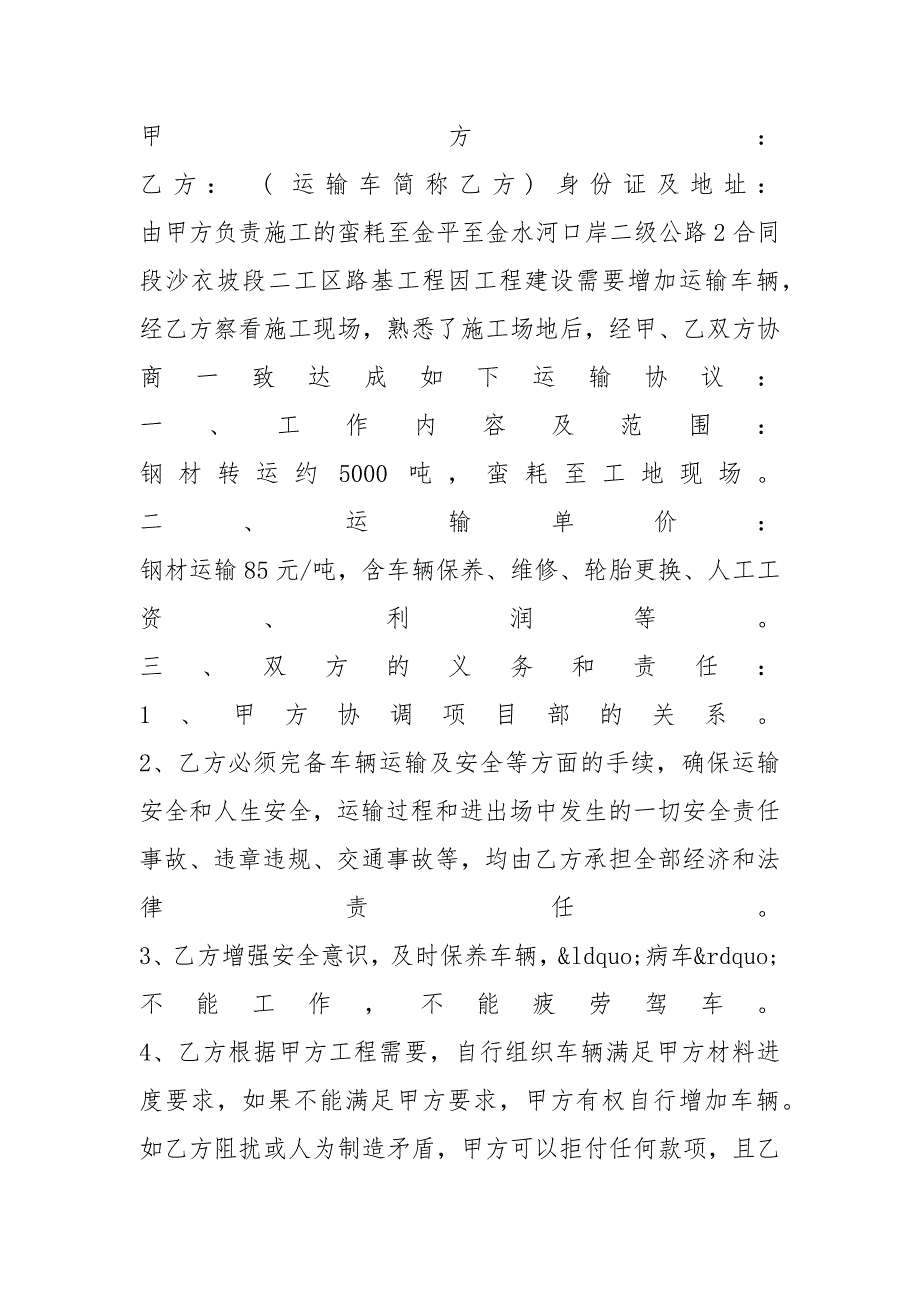 甲方：
乙方：（运输车简称乙方）身份证及地址：
由甲方负责施工的蛮耗至金平至金水河口岸二级公路2合同
段沙衣坡段二工区路基工程因工程建设需要增加运输车辆，
经乙方察看施工现场，熟悉了施工场地后，经甲、乙双方协
商一致达成如下运输协议：
一、工作内容及范围：
钢材转运约5000吨，蛮耗至工地现场。
二、运输单价：
钢材运输85元/吨，含车辆保养、维修、轮胎更换、人工工
资、利润等。
三、双方的义务和责任：
1、甲方协调项目部的关系。
2、乙方必须完备车辆运输及安全等方面的手续，确保运输
安全和人生安全，运输过程和进出场中发生的一切安全责任
事故、违章违规、交通事故等，均由乙方承担全部经济和法
律责任。
3、乙方增强安全意识，及时保养车辆，&ldquo;病车&rdquo;
不能工作，不能疲劳驾车。
4、乙方根据甲方工程需要，自行组织车辆满足甲方材料进
度要求，如果不能满足甲方要求，甲方有权自行增加车辆。
如乙方阻扰或人为制造矛盾，甲方可以拒付任何款项，且乙